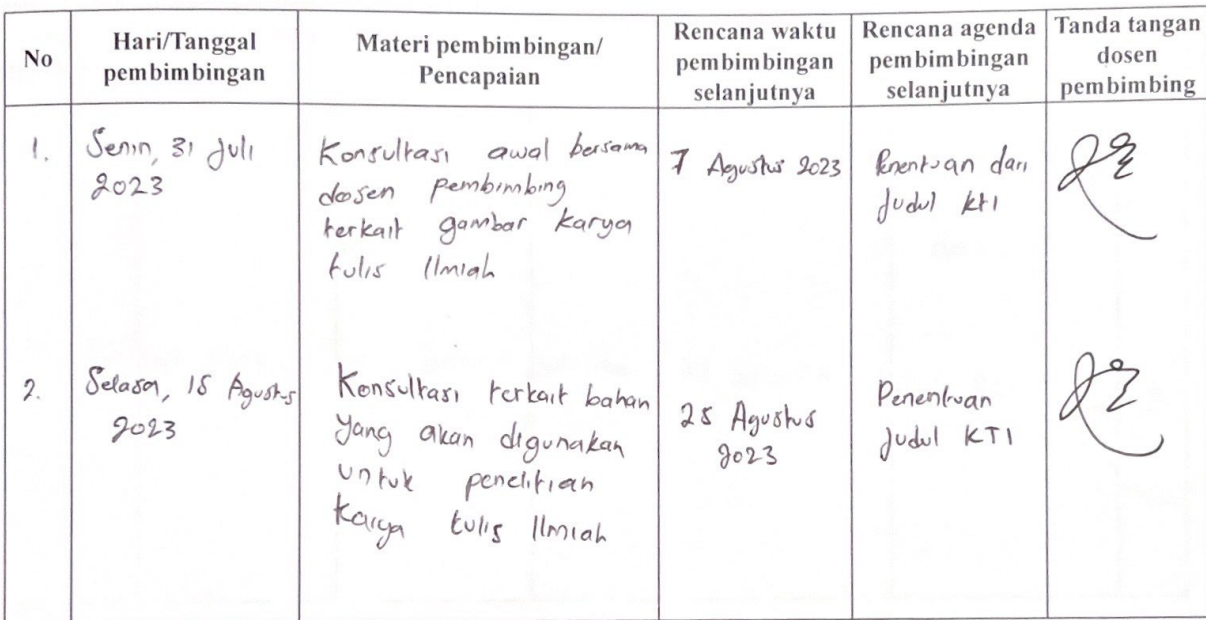 No
Hari/Tanggal
pembimbingan
Materi pembimbingan/
Pencapaian
Rencana waktu
pembimbingan
selanjutnya
Rencana agenda
pembimbingan
selanjutnya
Tanda tangan
dosen
pembimbing
1.
Senin, 31 Juli
2023
Konsultasi awal bersama
dosen pembimbing
terkait gambar karya
tulis Ilmiah
7 Agustus 2023
Penentuan dari
Judul KTI
2.
Selasa, 15 Agustus
2023
Konsultasi terkait bahan
yang akan digunakan
untuk penelitian
karya tulis Ilmiah
25 Agustus
2023
Penentuan
Judul KTI